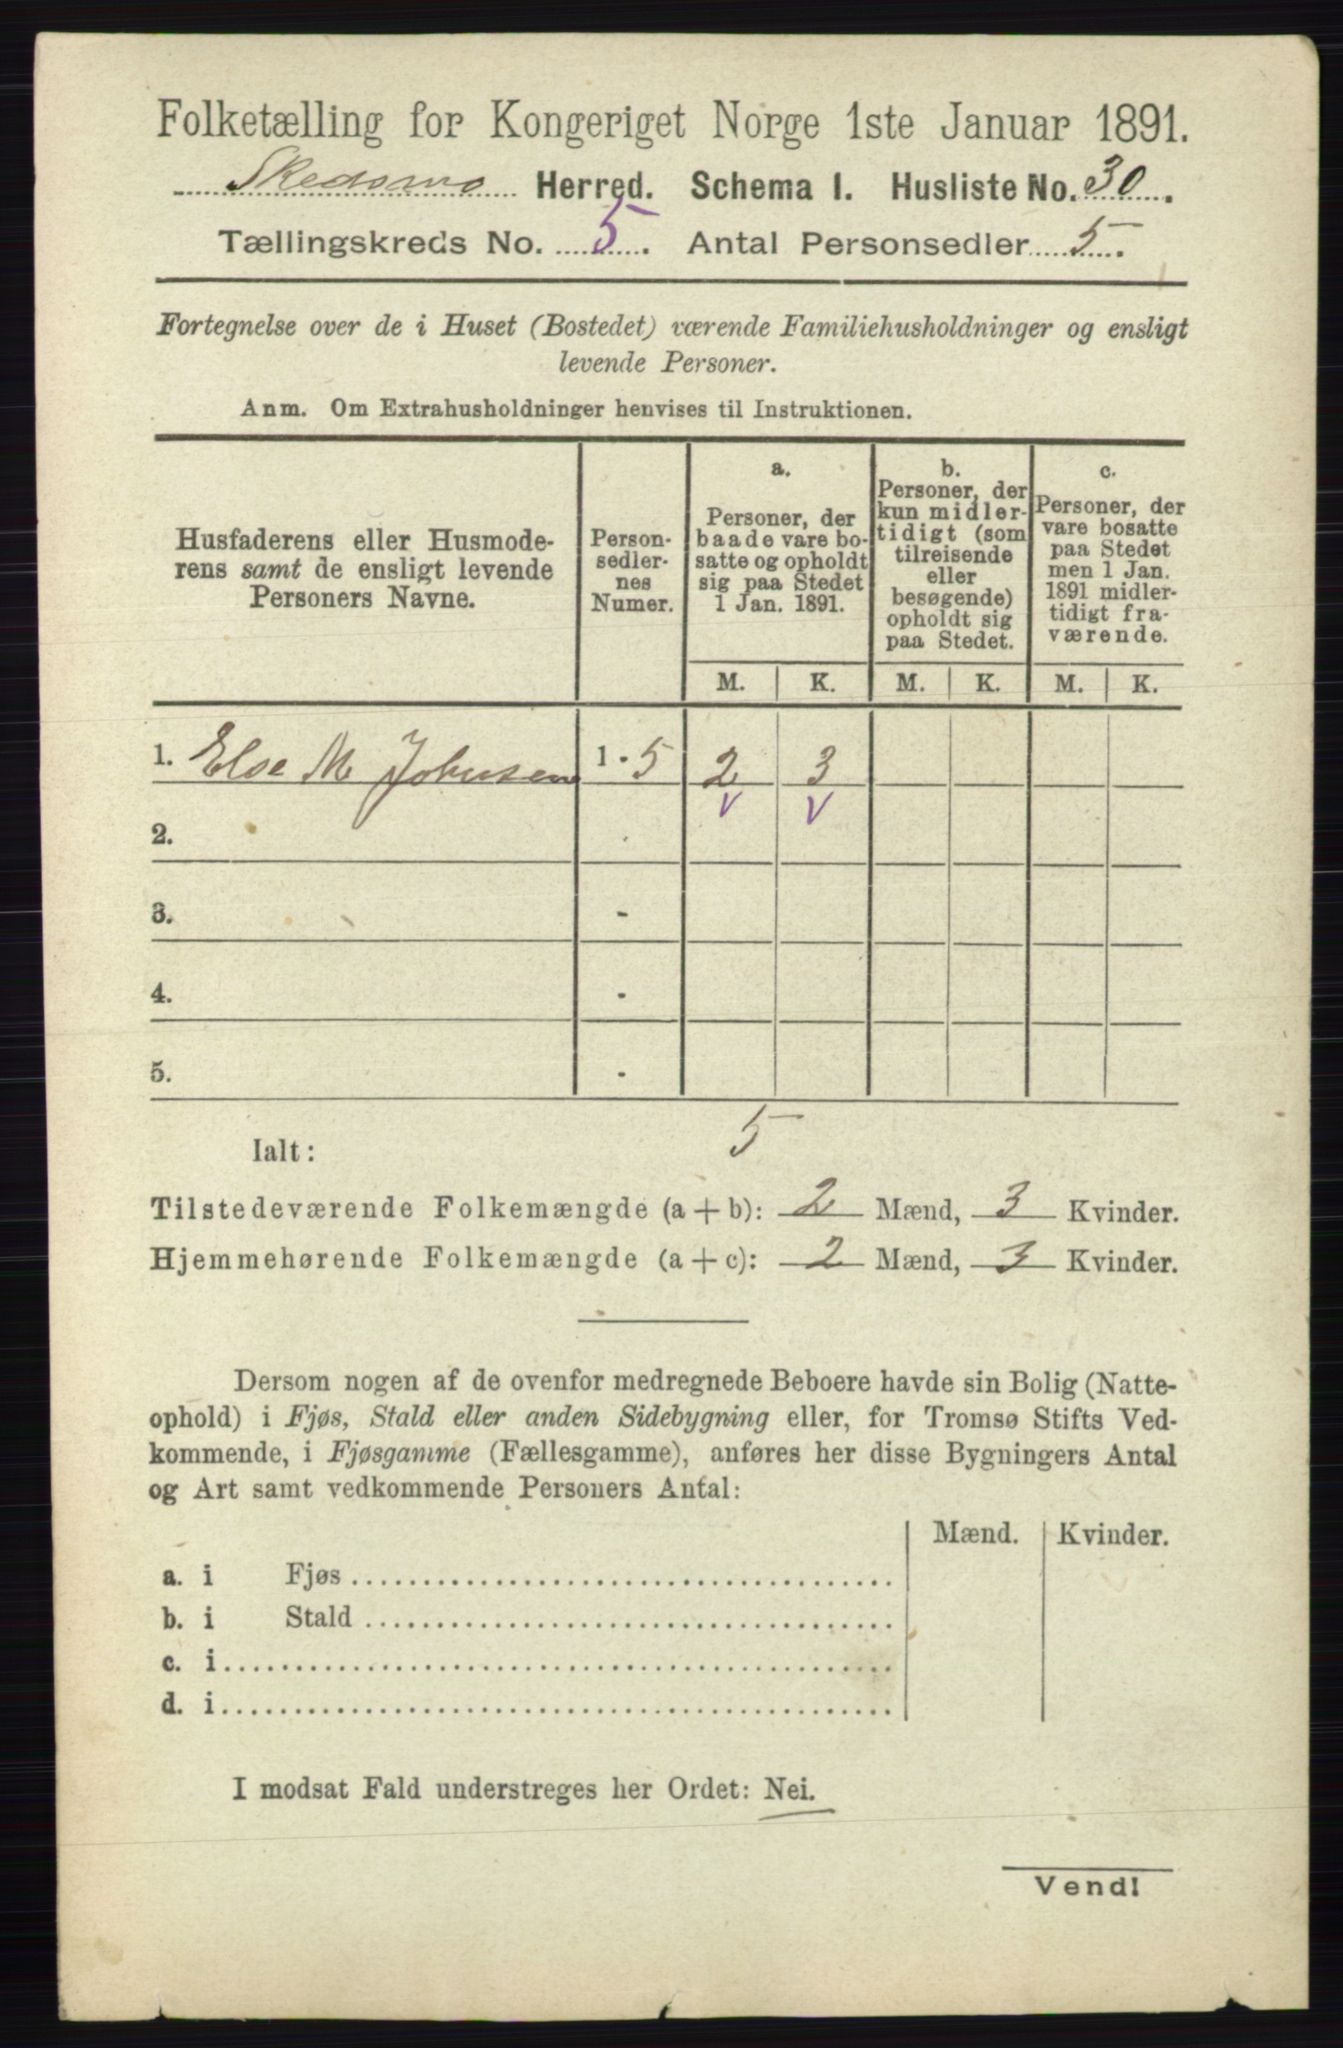 Folketælling for Kongeriget Norge 1ste Januar 1891.
Skedsmo Herred. Schema I. Husliste No. 30.
Tællingskreds No. 5. Antal Personsedler 5.
Fortegnelse over de i Huset (Bostedet) værende Familiehusholdninger og ensligt
levende Personer.
Anm. Om Extrahusholdninger henvises til Instruktionen.
Husfaderens eller Husmode-
rens samt de ensligt levende
Personers Navne.
Person-
sedler-
nes
Numer.
a.
Personer, der
baade vare bo-
satte og opholdt
sig paa Stedet
1 Jan. 1891.
b.
Personer, der
kun midler-
tidigt (som
tilreisende
eller
besøgende)
opholdt sig
paa Stedet.
c.
Personer, der
vare bosatte
paa Stedet
men 1 Jan.
1891 midler-
tidigt fra-
værende.
M. K. M. K. M. K.
1. Else M Johnsen 1 - 5 2 3
v v
2. -
3. -
4. -
5. -
5
Ialt:
Tilstedeværende Folkemængde (a + b): 2 Mænd, 3 Kvinder.
Hjemmehørende Folkemængde (a + c): 2 Mænd, 3 Kvinder.
Dersom nogen af de ovenfor medregnede Beboere havde sin Bolig (Natte-
ophold) i Fjøs, Stald eller anden Sidebygning eller, for Tromsø Stifts Ved-
kommende, i Fjøsgamme (Fællesgamme), anføres her disse Bygningers Antal
og Art samt vedkommende Personers Antal:
Mænd. Kvinder.
a. i Fjøs
b. i Stald
c. i
d. i
I modsat Fald understreges her Ordet: Nei.
Vend!